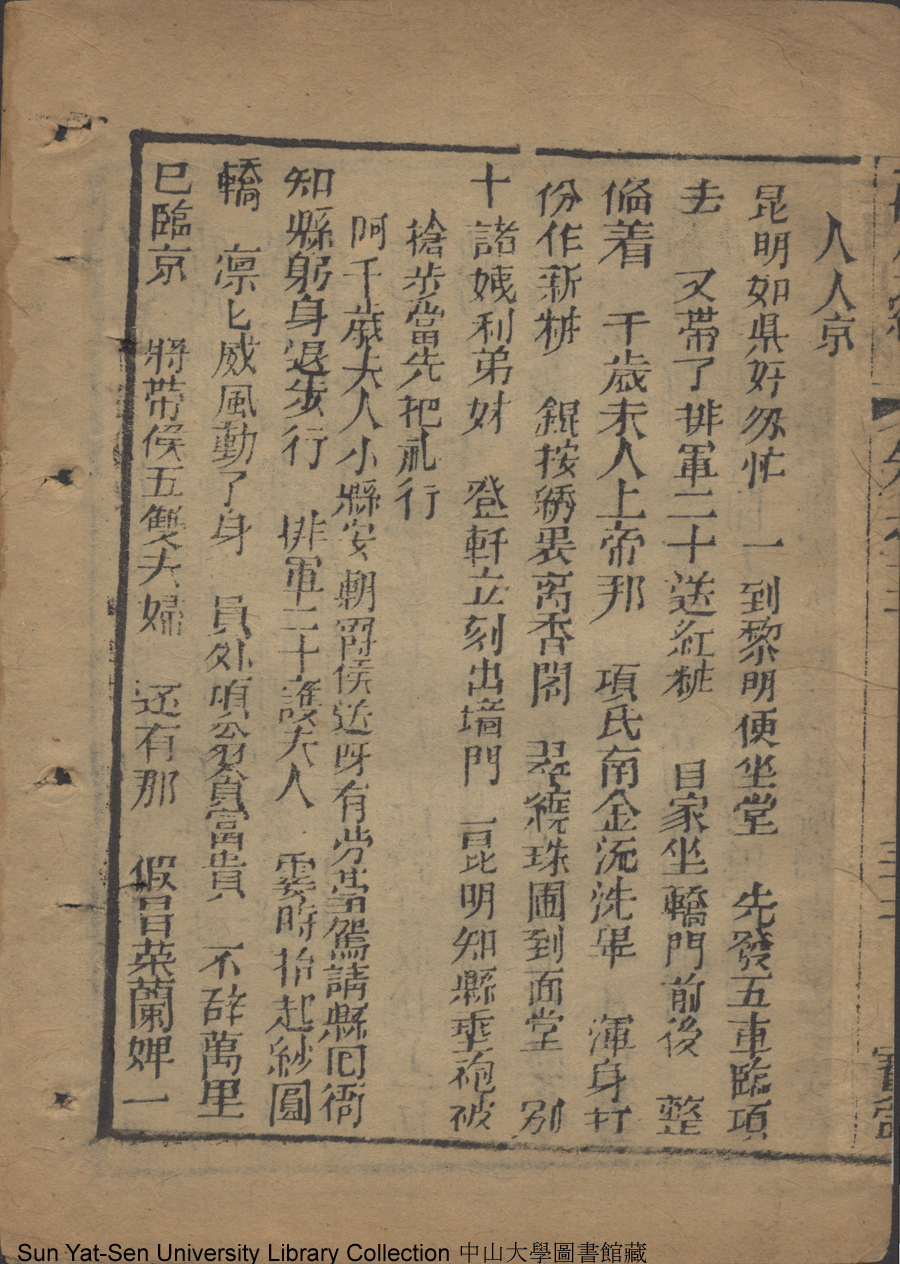 人人京
昆明如県好匆忙 一到黎明便坐堂 先發五車臨項
去 又帶了排軍二十送紅粧 目家坐轎門前後 整
俻着 千歲夫人上帝邦 項氏南金沅洗畢 渾身打
份作新粧 錕按綉裳离香閣 翠繞珠圍到面堂 别
十諸姨利弟妹 登軒立刻出墙門 昆明知縣垂袍被
搶步當先把礼行
阿千歲夫人小縣安朝爵侯送呀有劳當駕請縣囘衙
知縣躬身退步行 排軍二十護夫人 霎時抬起紗圓
轎 凛匕威風動了身 員外項公賀富貴 不辤萬里
巳臨京 將带侯五雙夫婦 还有那 假冒菜蘭婢一
Sun Yat-Sen University Library Collection 中山大學圖書館藏